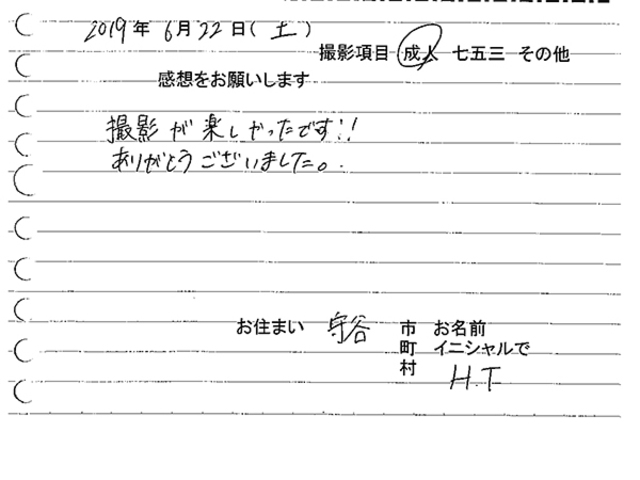 2019年 6月22日(土)
撮影項目 成人 七五三 その他
感想をお願いします
撮影が楽しかったです!!
ありがとうございました。
お住まい 守谷 市 お名前
町 イニシャルで
村 H.T